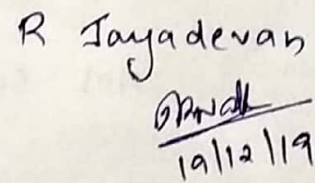 R Jayadevan
19/12/19